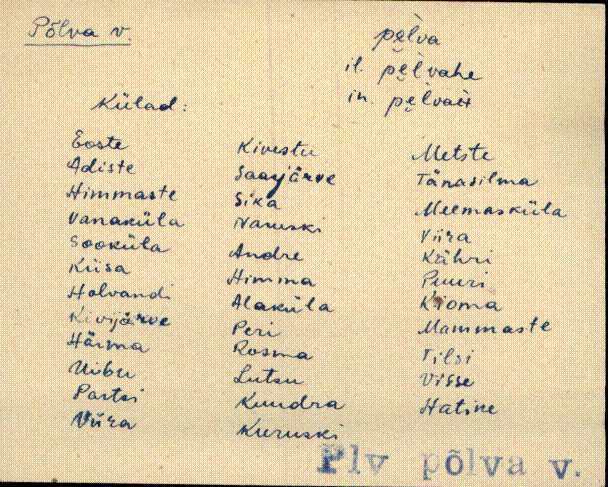 Põlva v.
pe̮lva
il. pe̮lvahe
in. pe̮lvaн
Külad:
Eoste
Adiste
Himmaste
Vanaküla
Sooküla
Kiisa
Holvandi
Kivijärve
Härma
Uibu
Partsi
Viira
Kivestu
Saarjärve
Sika
Naruski
Andre
Himma
Alaküla
Peri
Rosma
Lutsu
Kuudra
Kuruski
Metste
Tänasilma
Meemasküla
Viira
Kähri
Puuri
Kioma
Mammaste
Tilsi
Visse
Hatike
Plv põlva v.